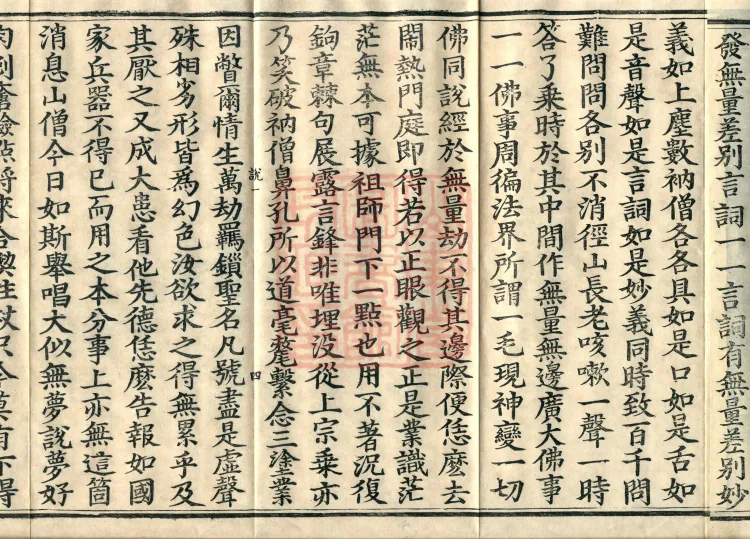 發無量差別言詞一一言詞有無量差別妙
義如上塵數衲僧各各具如是口如是舌如
是音聲如是言詞如是妙義同時致百千問
難問問各別不消徑山長老咳嗽一聲一時
答了乗時於其中間作無量無邊廣大佛事
一一佛事周徧法界所謂一毛現神變一切
佛同說經於無量劫不得其邊際便恁麽去
鬧熱門庭即得若以正眼觀之正是業識茫
茫無本可據祖師門下一點也用不著況復
鉤章棘句展露言鋒非唯埋没從上宗乗亦
乃笑破衲僧鼻孔所以道毫氂繫念三塗業
説一 四
因瞥爾情生萬劫羈鎖聖名凡號盡是虛聲
殊相劣形皆爲幻色汝欲求之得無累乎及
其厭之又成大患看他先德恁麽告報如國
家兵器不得已而用之本分事上亦無這箇
消息山僧今日如斯舉唱大似無夢說夢好
肉剜瘡檢點將來合喫拄杖只今莫有下得